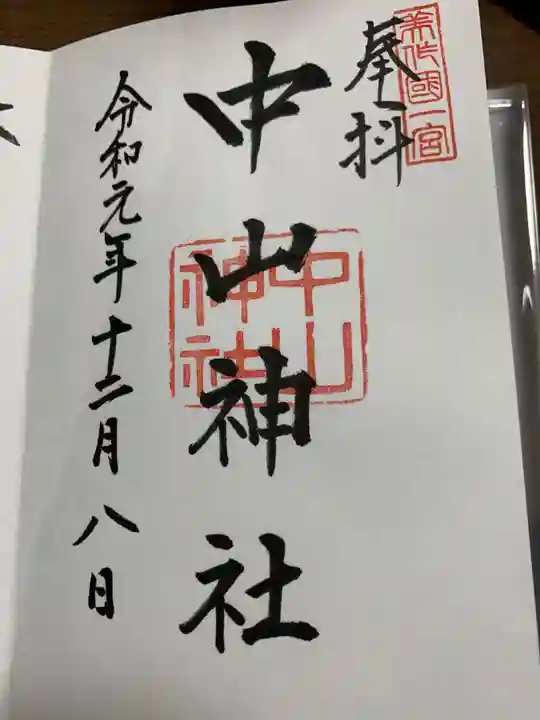 美作國一宮
奉拝
中山神社
中山神社
令和元年十二月八日